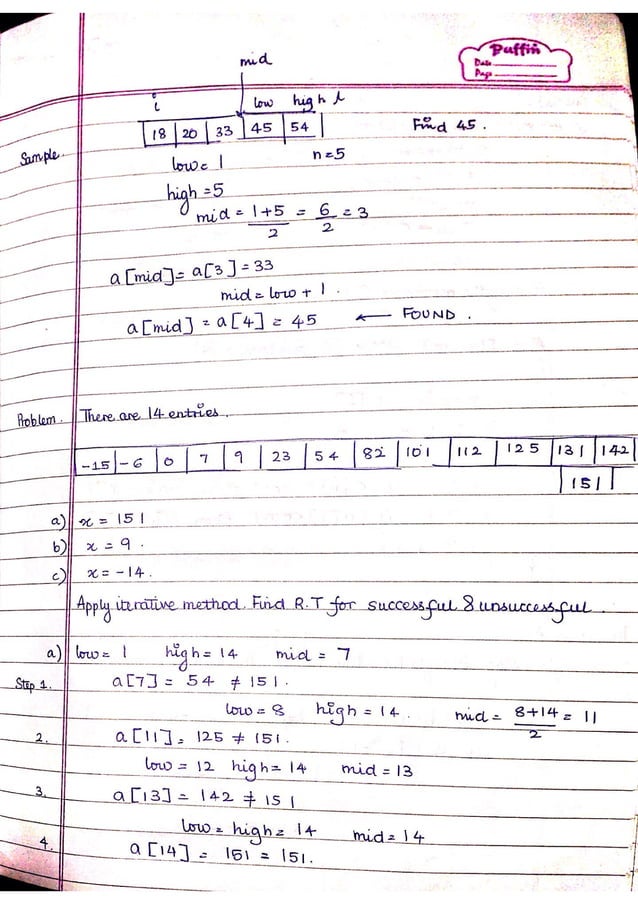 Puffin
Date
Page
mid
i low high l
18 20 33 45 54 Find 45.
Sample.
low = 1 n=5
high = 5
mid = 1+5 = 6 = 3
2 2
a[mid] = a[3] = 33
mid = low + 1.
a[mid] = a[4] = 45 ← FOUND.
Problem. There are 14 entries.
-15 -6 0 7 9 23 54 82 101 112 125 131 142
151
a) x = 151
b) x = 9.
c) x = -14.
Apply iterative method. Find R.T for successful & unsuccessful
a) low = 1 high = 14 mid = 7
Step 1. a[7] = 54 ≠ 151.
low = 8 high = 14. mid = 8+14 = 11
2
2. a[11] = 125 ≠ 151.
low = 12 high = 14 mid = 13
3. a[13] = 142 ≠ 151
low = high = 14 mid = 14
4. a[14] = 151 = 151.